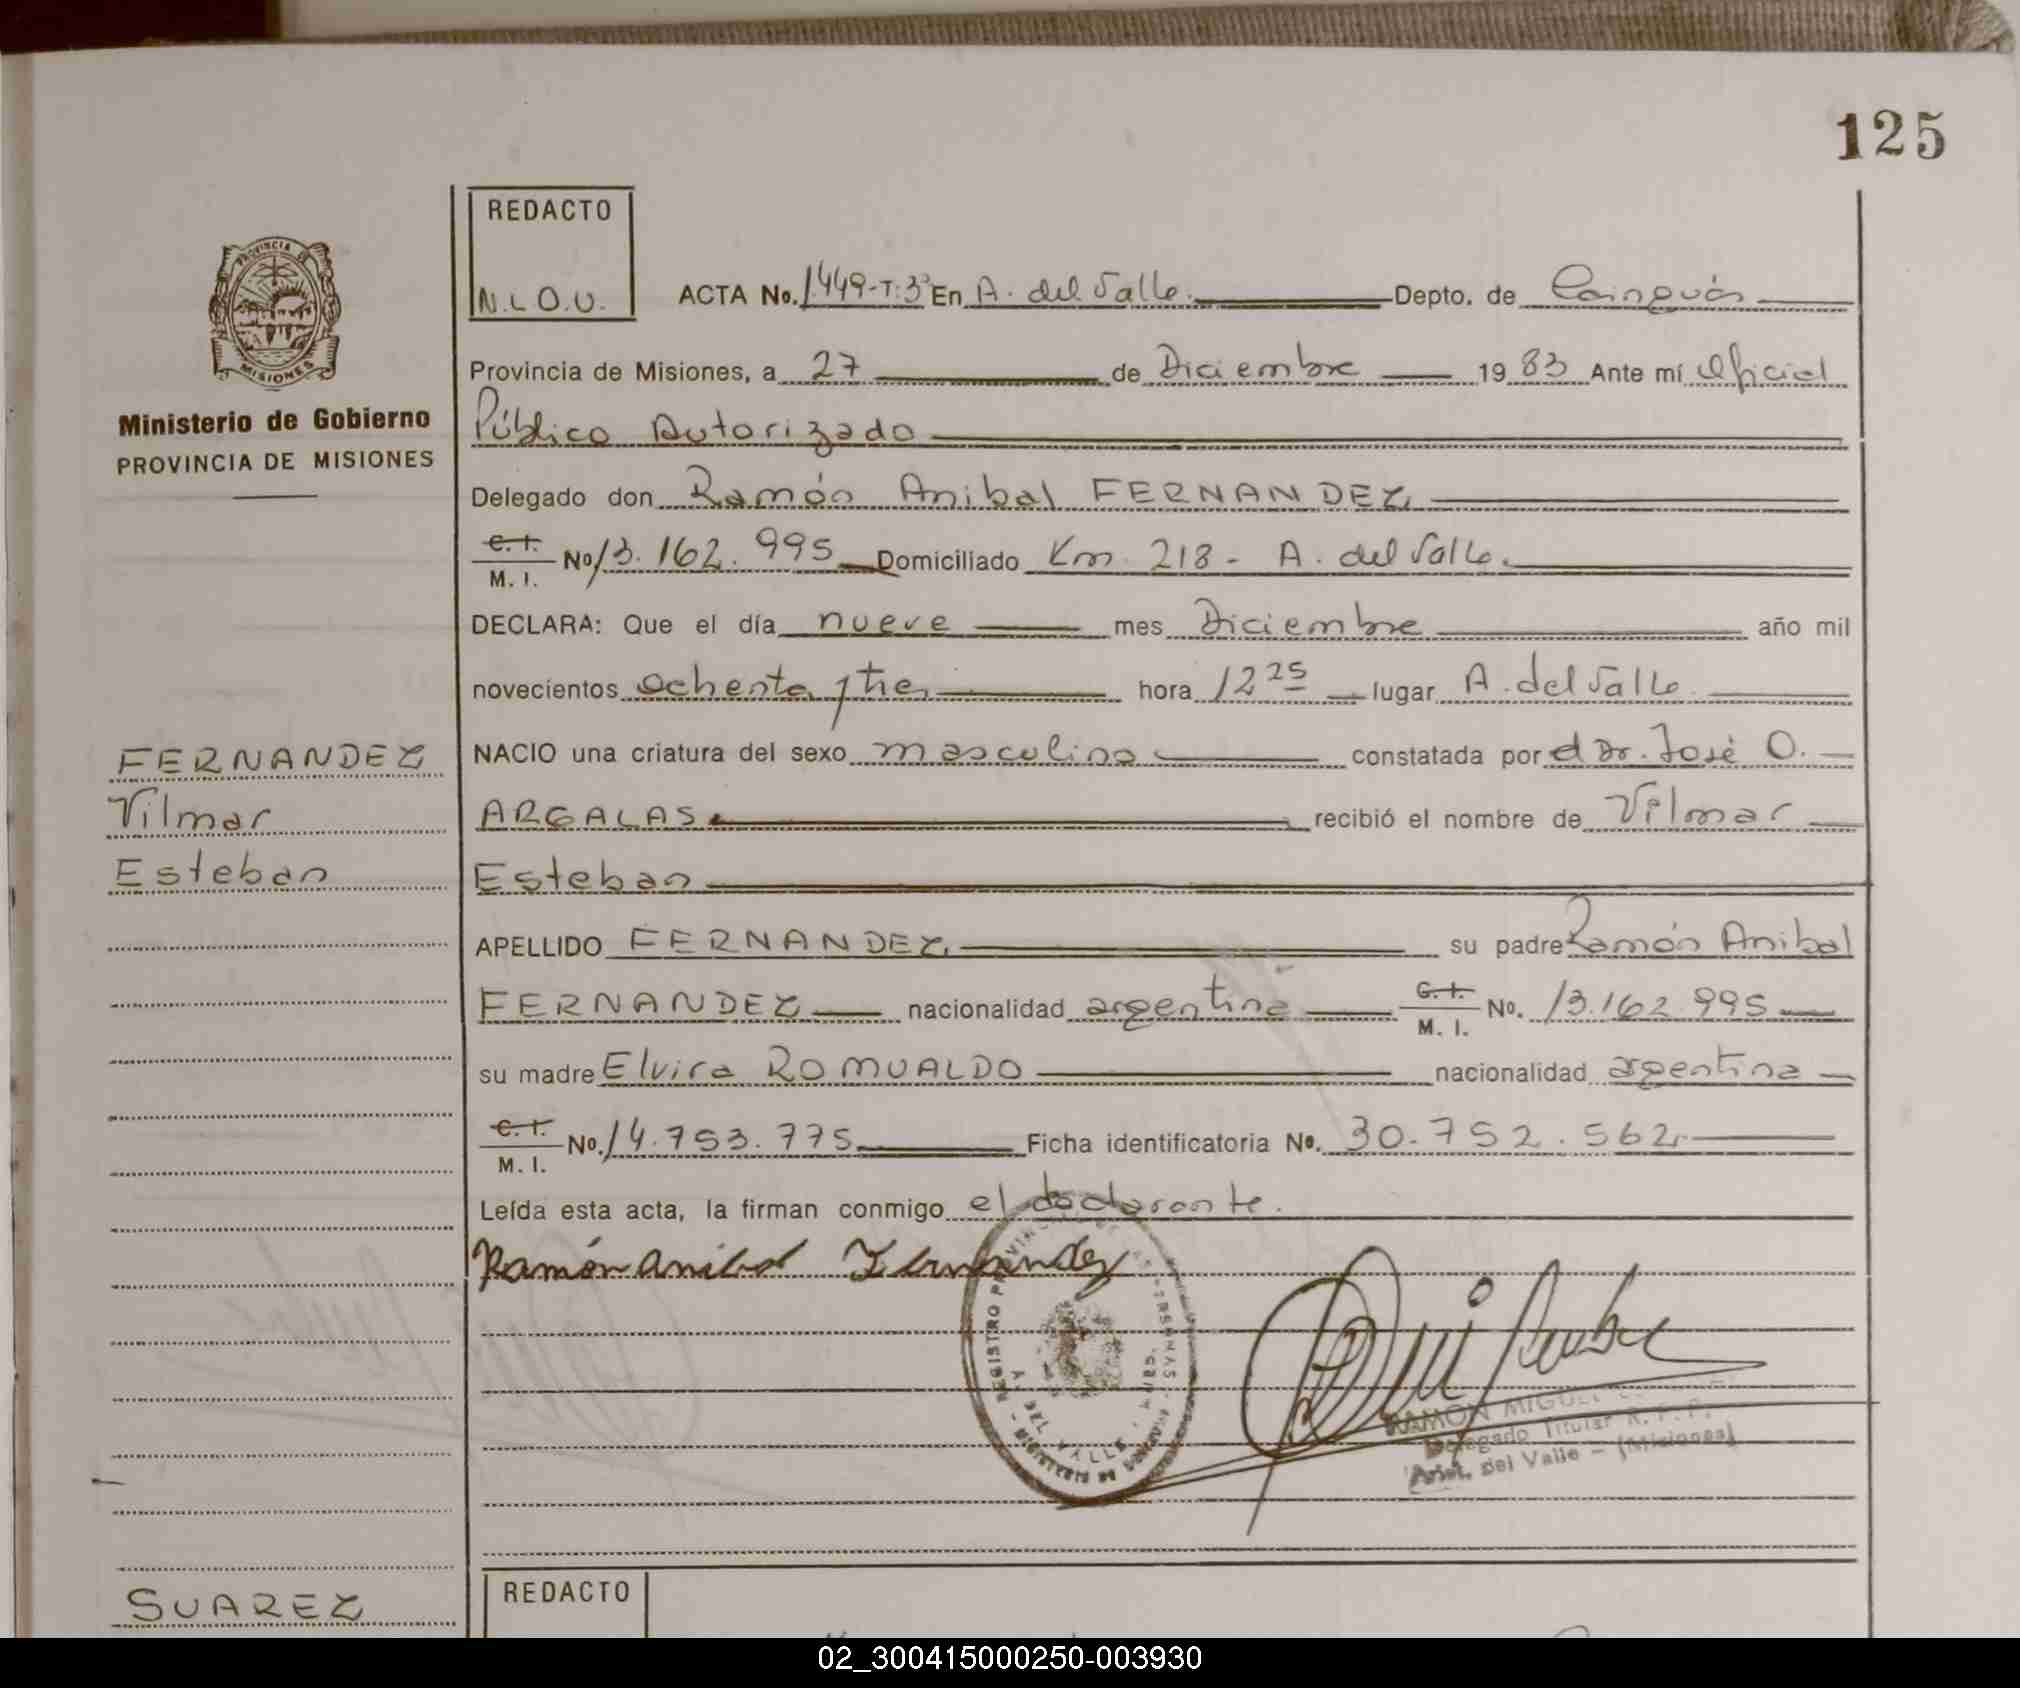 125
REDACTO
N.L.O.U.
PROVINCIA DE
MISIONES
Ministerio de Gobierno
PROVINCIA DE MISIONES
ACTA No. 1.449-T:3º En A. del Valle. Depto. de Cainguás
Provincia de Misiones, a 27 de Diciembre 1983 Ante mí Oficial
Público Autorizado
Delegado don Ramón Anibal FERNANDEZ,
C. I. / M. I. No 13.162.995 Domiciliado Km. 218 - A. del Valle.
DECLARA: Que el día nueve mes Diciembre año mil
novecientos ochenta y tres hora 12 25 lugar A. del Valle.
FERNANDEZ
Vilmar
Esteban
NACIO una criatura del sexo masculino constatada por el Dr. José O.
ARGALAS recibió el nombre de Vilmar
Esteban
APELLIDO FERNANDEZ, su padre Ramón Anibal
FERNANDEZ nacionalidad argentina C. I. / M. I. No. 13.162.995
su madre Elvira ROMUALDO nacionalidad argentina
C. I. / M. I. No. 14.753.775 Ficha identificatoria No. 30.752.562
Leída esta acta, la firman conmigo el declarante.
Ramón Anibal Fernandez
REGISTRO DE LAS PERSONAS
A. DEL VALLE
MINISTERIO DE GOBIERNO
RAMON MIGUEL
Delegado Titular R. P. P.
Arist. del Valle - (Misiones)
SUAREZ
REDACTO
02_300415000250-003930